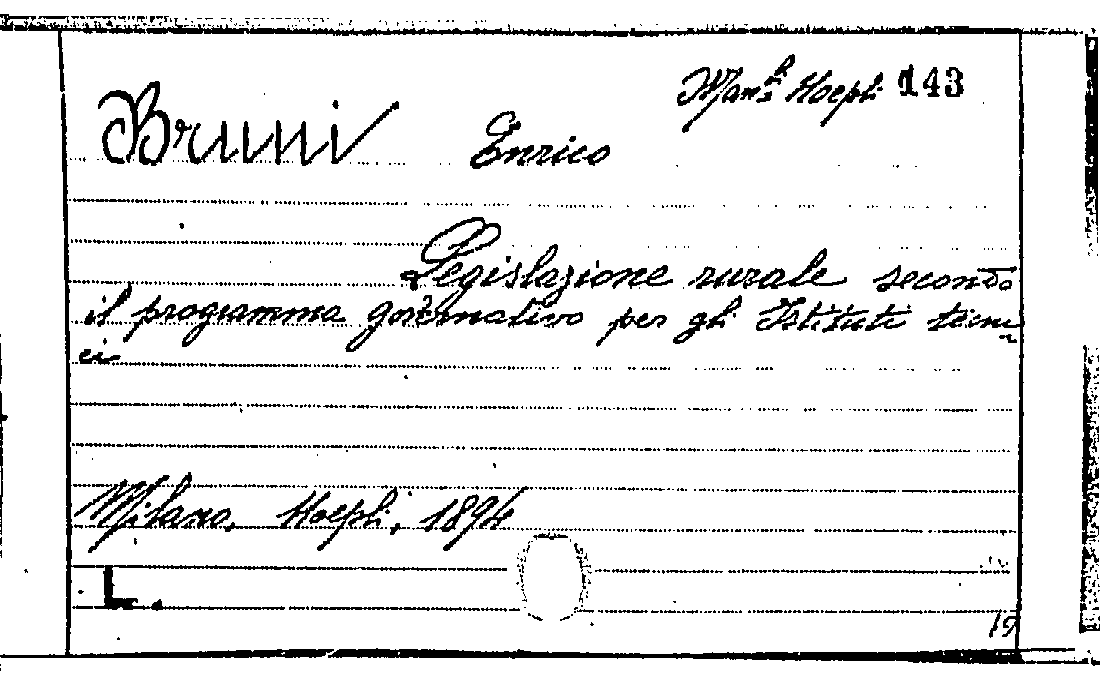 Man.li Hoepli 143
Bruni Enrico
Legislazione rurale secondo
il programma governativo per gli Istituti tecni
ci
Milano, Hoepli, 1894
L.
19